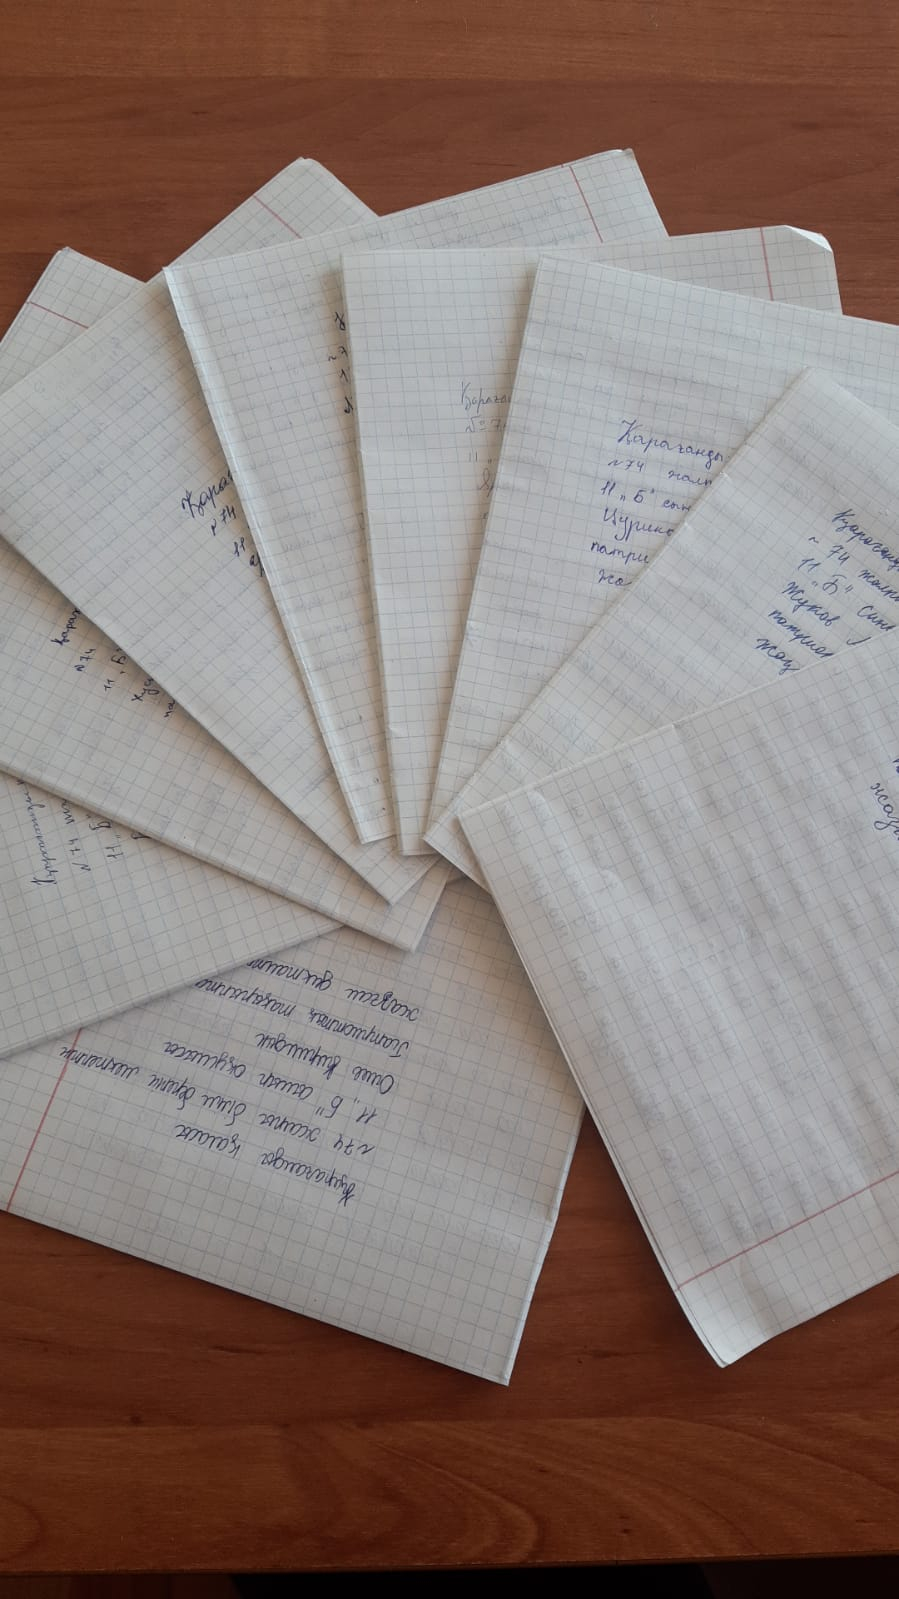 Қараганды қаласы
№74 жалпы білім беретін мектептің
11 „Б" сынып оқушысы
Патриоттық тақырыпта
жазған диктант
Қараганды
№74 жалп
11 „Б" сын
Цурик
патрио
жа
Қараганды
№74 жалпы
11 „Б" сын
Жуков
патриот
жаз
Қарага
№74
11 „
Қара
№74
11
Қараг
№74
11 „Б"
Хус
па
№74
11 „Б"
жаз